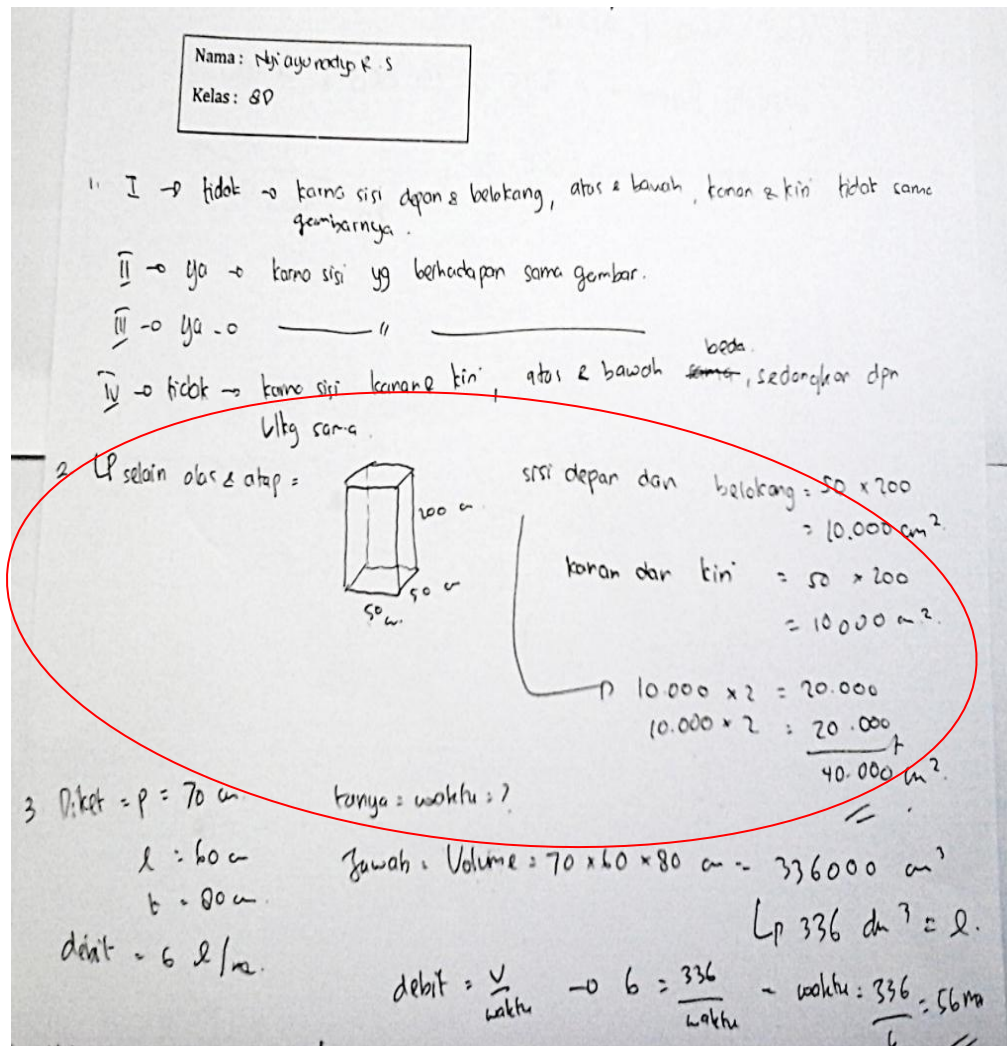 Nama : Nyi ayu nadya R.S
Kelas : 8D
1. I → tidak → karna sisi depan & belakang, atas & bawah, kanan & kiri tidak sama
gambarnya.
II → ya → karna sisi yg berhadapan sama gambar.
III → ya → ——— " ———
IV → tidak → karna sisi kanan & kiri, atas & bawah sama beda, sedangkan dpn
blkg sama.
2 LP selain alas & atap =
200 cm
50 cm
50 cm
sisi depan dan belakang = 50 × 200
= 10.000 cm².
kanan dan kiri = 50 × 200
= 10000 cm².
→ 10.000 × 2 = 20.000
10.000 × 2 = 20.000 +
40.000 cm².
3 Diket = p = 70 cm
l = 60 cm
t = 80 cm.
debit = 6 l/m.
tanya = waktu = ?
Jawab = Volume = 70 × 60 × 80 cm = 336000 cm³
↳ 336 dm³ = l.
debit = V/waktu → 6 = 336/waktu = waktu = 336/6 = 56 m